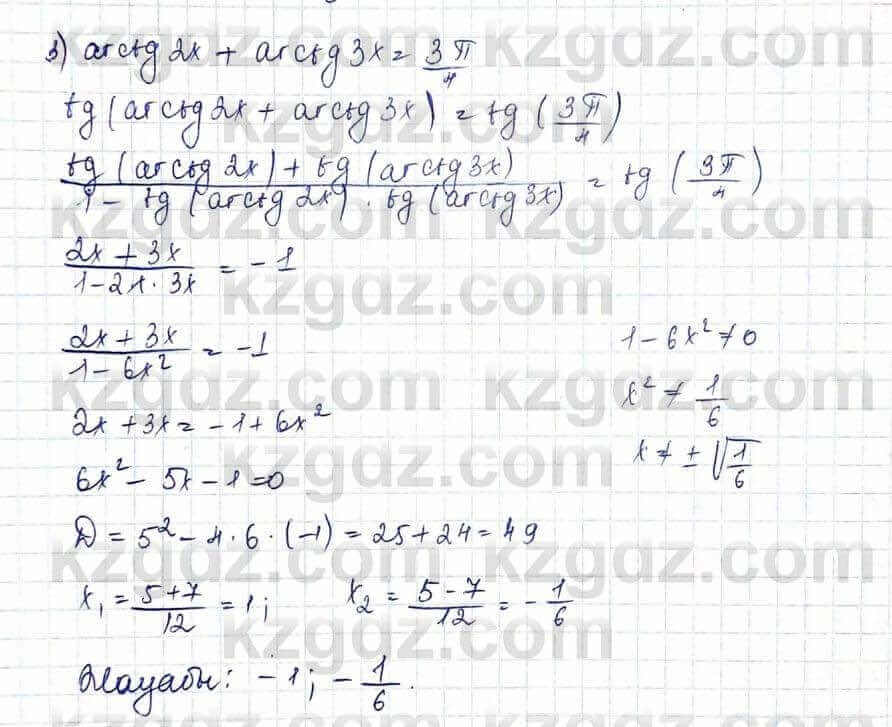 3) arctg 2x + arctg 3x = 3π/4
tg (arctg 2x + arctg 3x) = tg (3π/4)
(tg (arctg 2x) + tg (arctg 3x))/(1 - tg (arctg 2x) · tg (arctg 3x)) = tg (3π/4)
(2x + 3x)/(1 - 2x · 3x) = -1
(2x + 3x)/(1 - 6x²) = -1
1 - 6x² ≠ 0
x² ≠ 1/6
x ≠ ± √(1/6)
2x + 3x = -1 + 6x²
6x² - 5x - 1 = 0
D = 5² - 4 · 6 · (-1) = 25 + 24 = 49
x₁ = (5 + 7)/12 = 1; x₂ = (5 - 7)/12 = -1/6
Жауабы: - 1; - 1/6.
kzgdz.com